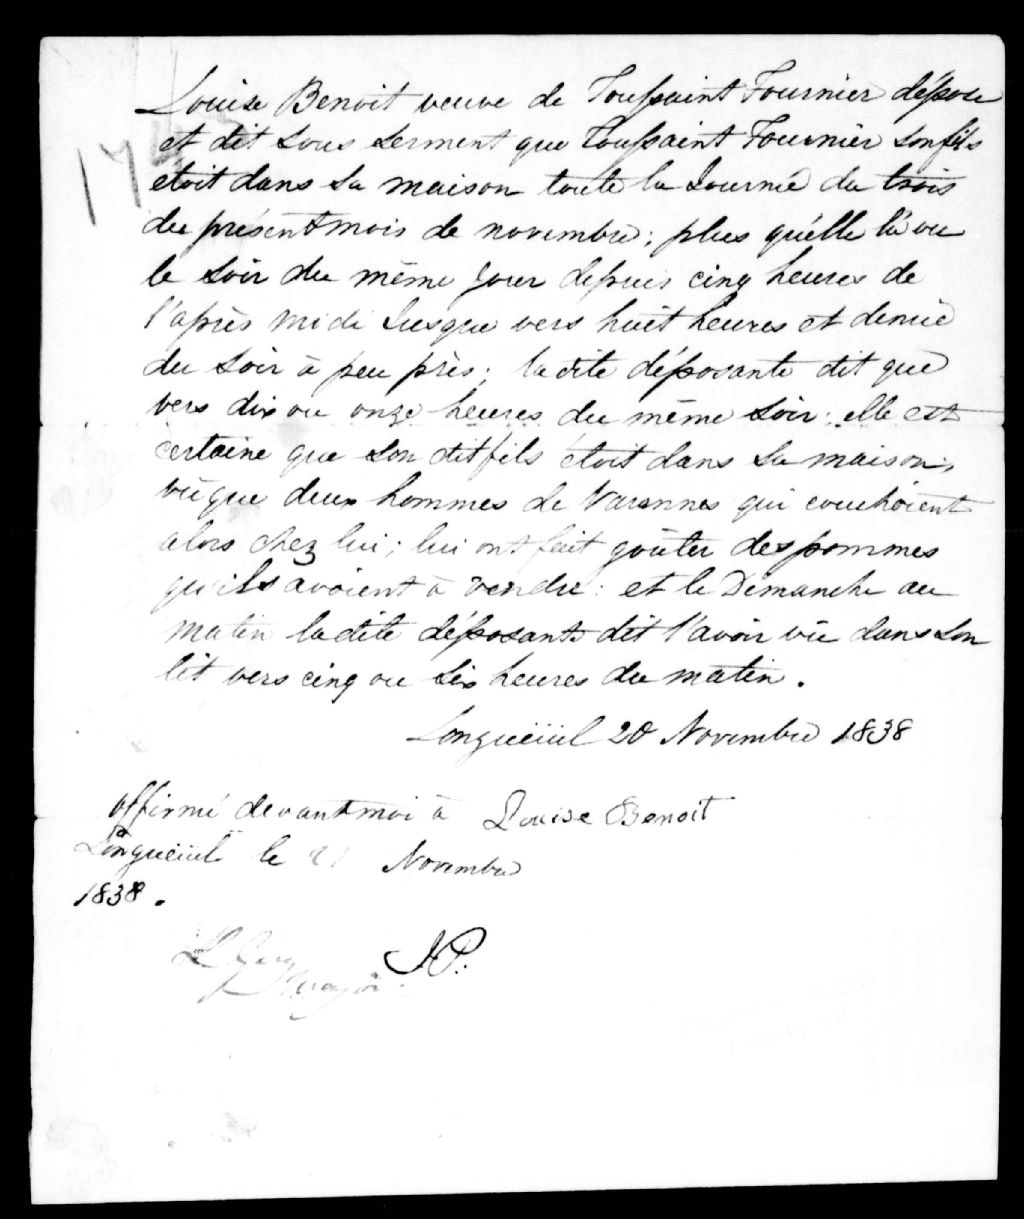 Louise Benoit veuve de Toussaint Fournier dépose
et dit sous serment que Toussaint Fournier son fils
étoit dans sa maison toute la Journée du trois
du présent mois de novembre; plus qu'elle l'a vu
le soir du même Jour depuis cinq heures de
l'après midi Jusque vers huit heures et demie
du soir à peu près; la dite déposante dit que
vers dix ou onze heures du même soir; elle est
certaine que son dit fils étoit dans sa maison,
vû que deux hommes de Varennes qui couchoient
alors chez lui; lui ont fait goûter des pommes
qu'ils avoient à vendre: et le Dimanche au
matin la dite déposante dit l'avoir vû dans son
lit vers cinq ou six heures du matin.
Longueüiul 20 Novembre 1838
affirmé devant moi à Louise Benoit
Longueüiul le 21 Novembre
1838.
J.P.